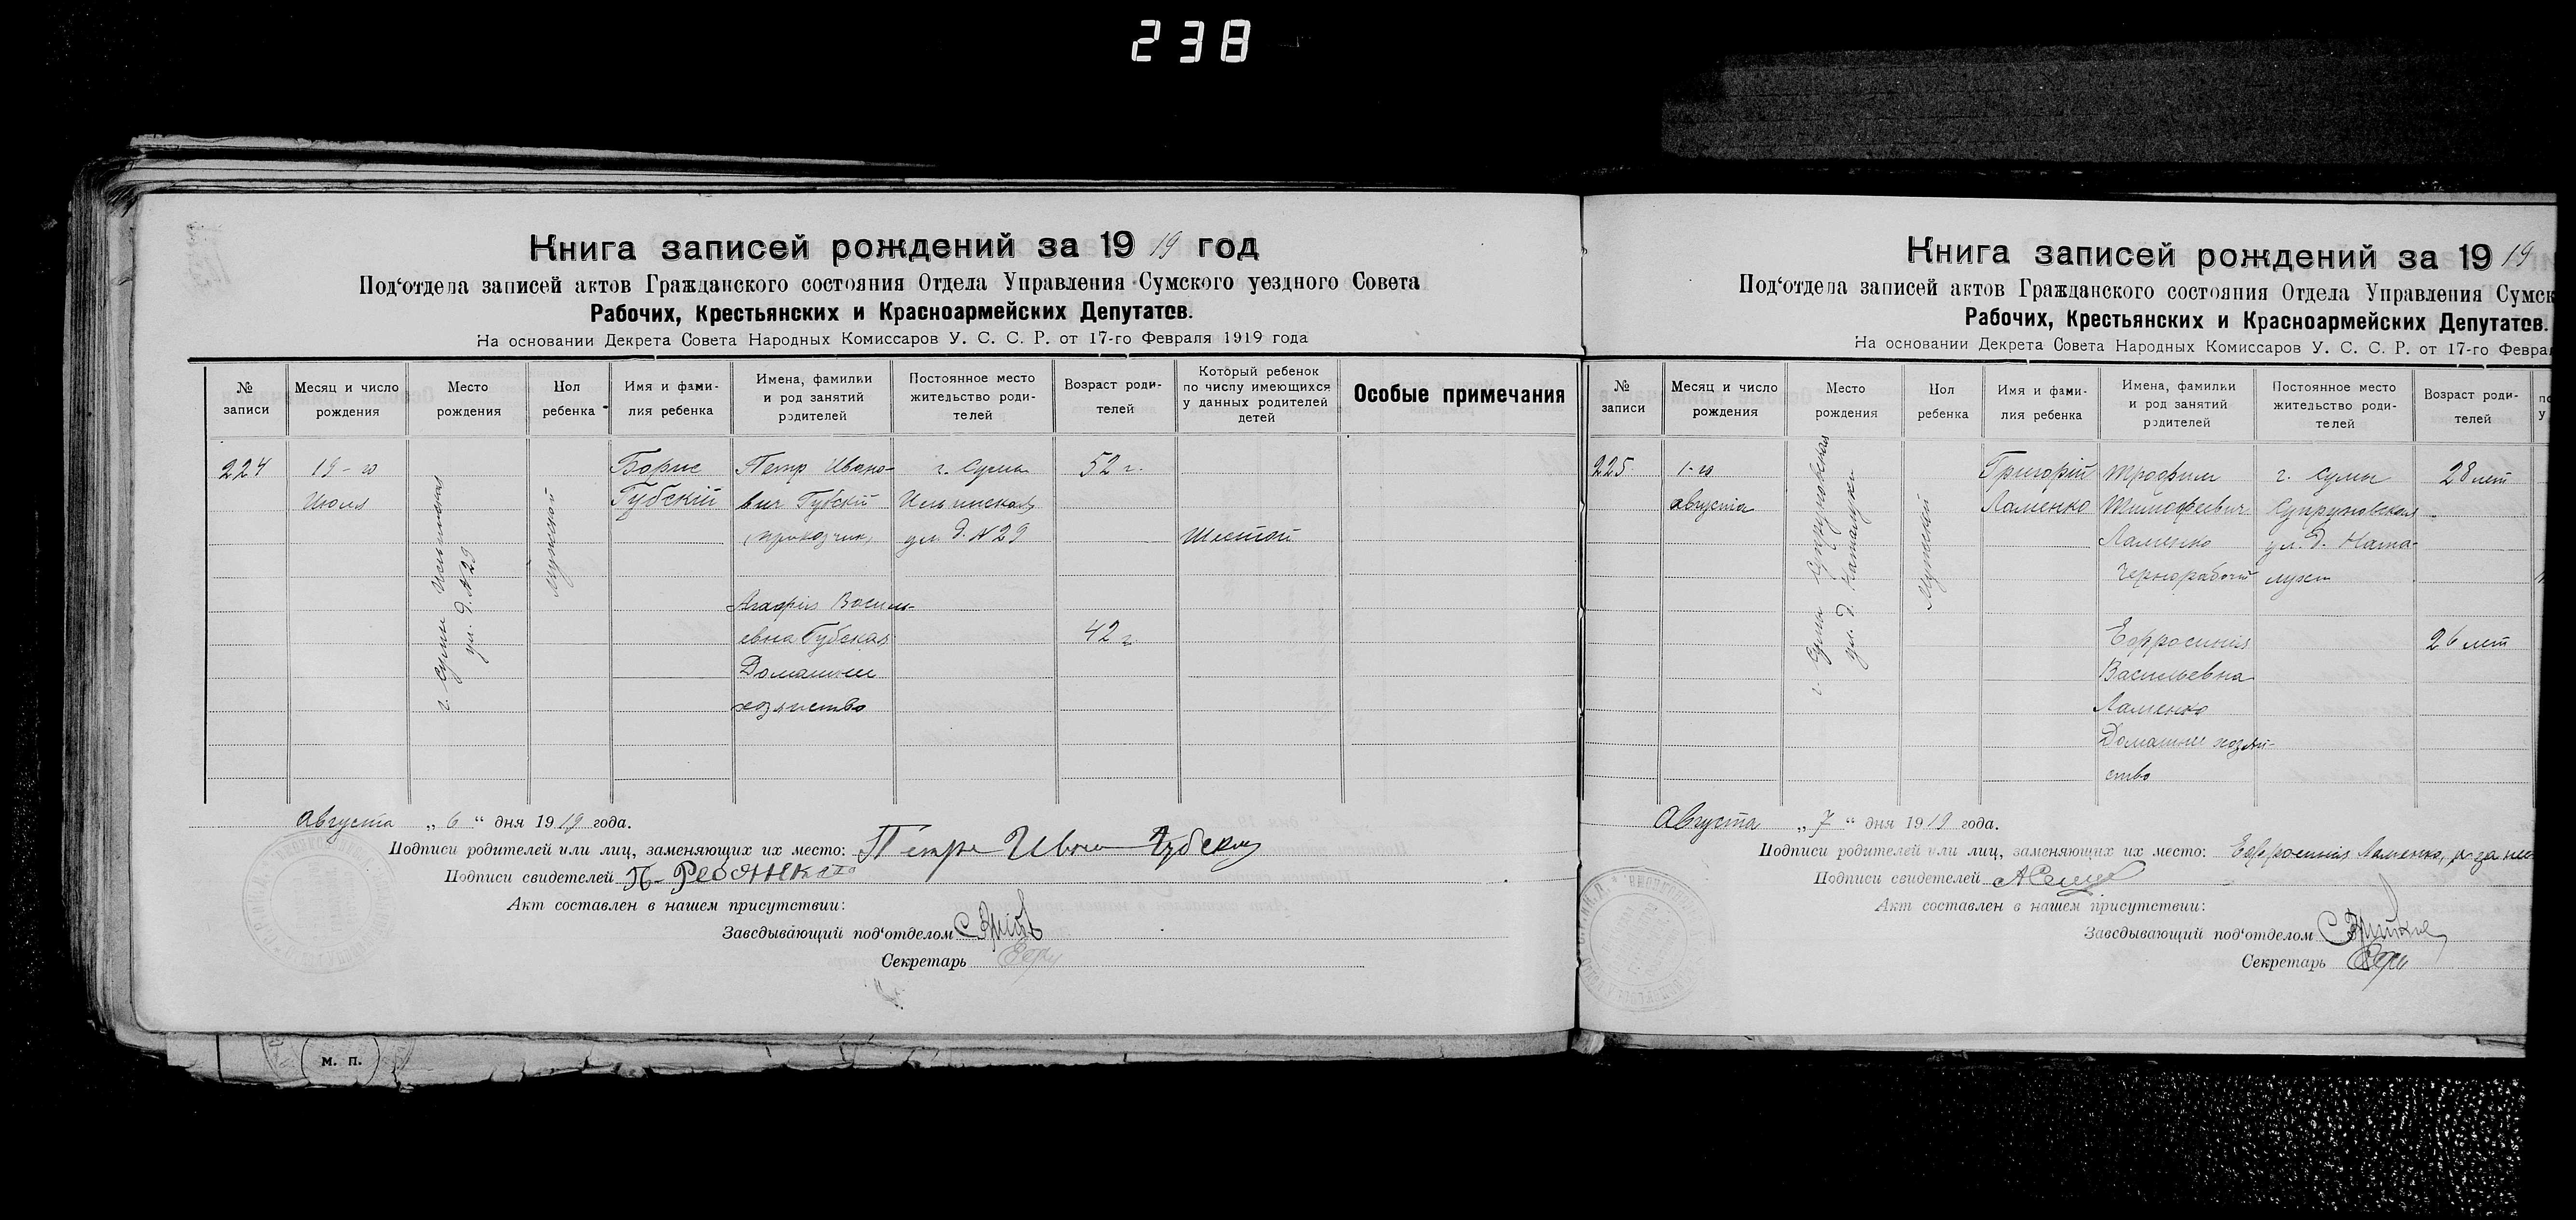 238
Книга записей рождений за 1919 год
Под‘отдела записей актов Гражданского состояния Отдела Управления Сумского уездного Совета
Рабочих, Крестьянских и Красноармейских Депутатов.
На основании Декрета Совета Народных Комиссаров У. С. С. Р. от 17-го Февраля 1919 года
№ записи
Месяц и число рождения
Место рождения
Пол ребенка
Имя и фами-
лия ребенка
Имена, фамилии
и род занятий
родителей
Постоянное место
жительство роди-
телей
Возраст роди-
телей
Который ребенок
по числу имеющихся
у данных родителей
детей
Особые примечания
224
19-го
Июля
г. Сумы Ильинская
ул. д. № 29
Мужской
Борис
Губский
Петр Ивано-
вич Губский
Агафия Василь-
евна Губская
Домашнее
хозяйство
г. Сумы
Ильинская
ул. д. № 29
52 г.
42 г.
Шестой
Августа „6“ дня 1919 года.
Подписи родителей или лиц, заменяющих их место: Петр Губский
Подписи свидетелей
Акт составлен в нашем присутствии:
Заведывающий под‘отделом
Секретарь
м. п.
Книга записей рождений за 1919
Под‘отдела записей актов Гражданского состояния Отдела Управления Сумск
Рабочих, Крестьянских и Красноармейских Депутатов.
На основании Декрета Совета Народных Комиссаров У. С. С. Р. от 17-го Феврал
№ записи
Месяц и число рождения
Место рождения
Пол ребенка
Имя и фами-
лия ребенка
Имена, фамилии
и род занятий
родителей
Постоянное место
жительство роди-
телей
Возраст роди-
телей
225
1-го
августа
г. Сумы Супруновская
ул. д.
Мужский
Григорий
Ламенко
Трофим
Тимофеевич
Ламенко
Чернорабочий
Ефросиния
Васильевна
Ламенко
Домашнее хозяй-
ство
г. Сумы
Супруновская
ул. д. Ната-
лухи
28 лет
26 лет
Августа „7“ дня 1919 года.
Подписи родителей или лиц, заменяющих их место: Ефросиния Ламенко, а за нее
Подписи свидетелей
Акт составлен в нашем присутствии:
Заведывающий под‘отделом
Секретарь